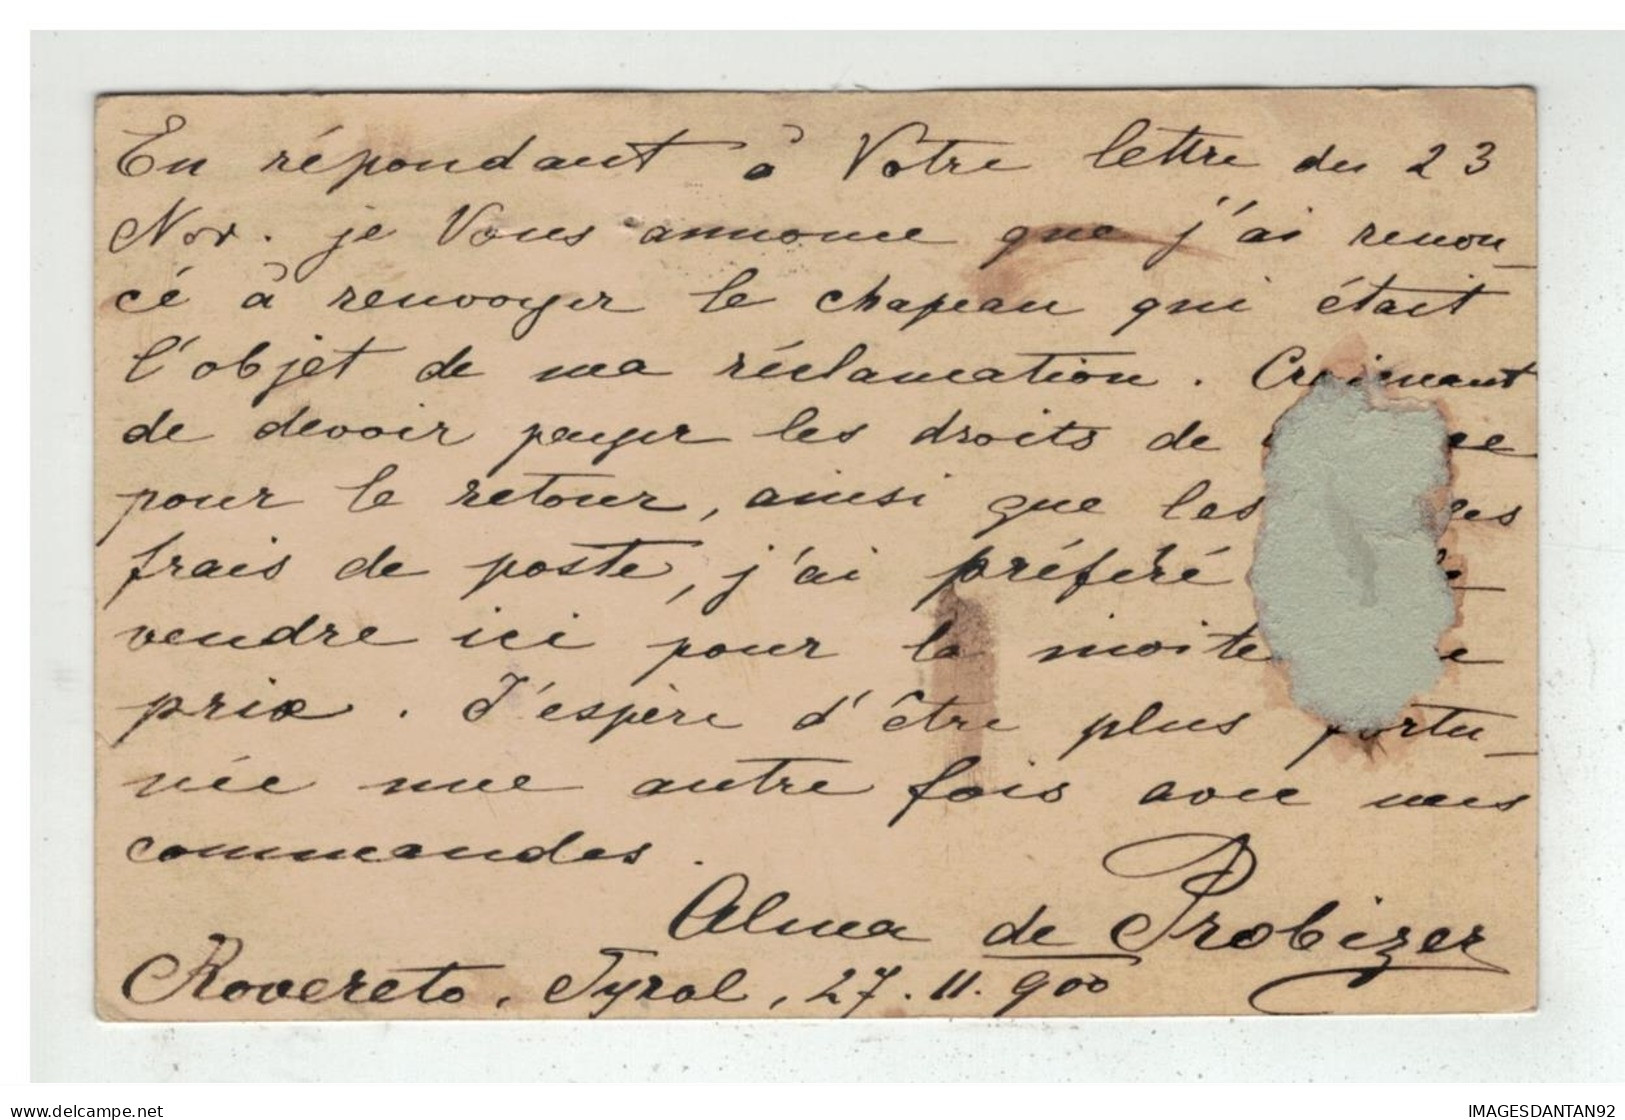 En répondant à Votre lettre du 23
Nov. je Vous annonce que j'ai renon-
cé à renvoyer le chapeau qui était
l'objet de ma réclamation. Craignant
de devoir payer les droits de
pour le retour, ainsi que les
frais de poste, j'ai préféré
vendre ici pour la moité
prix. J'espère d'être plus fortu-
née une autre fois avec mes
commandes.
Alma de Probizer
Rovereto, Tyrol, 27.11.900
www.delcampe.net
IMAGESDANTAN92